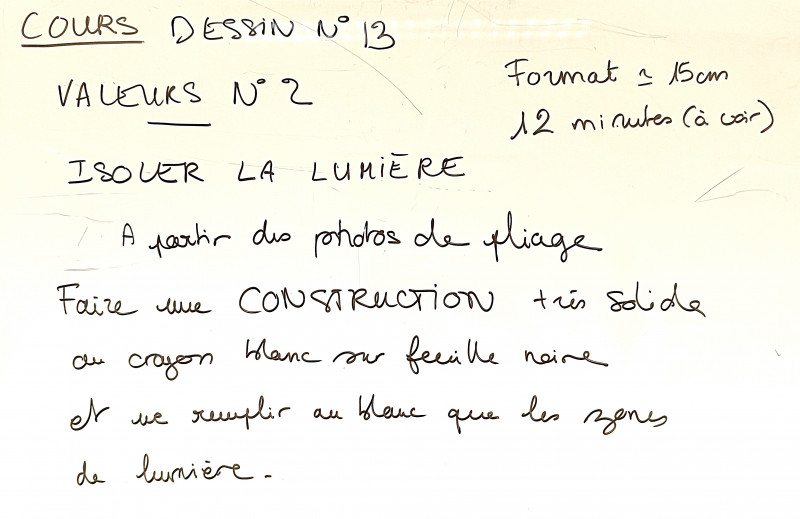 COURS DESSIN N° 13
VALEURS N° 2
Format ≃ 15cm
12 minutes (à voir)
ISOLER LA LUMIÈRE
A partir des photos de pliage
Faire une CONSTRUCTION très solide
au crayon blanc sur feuille noire
et ne remplir au blanc que les zones
de lumière.